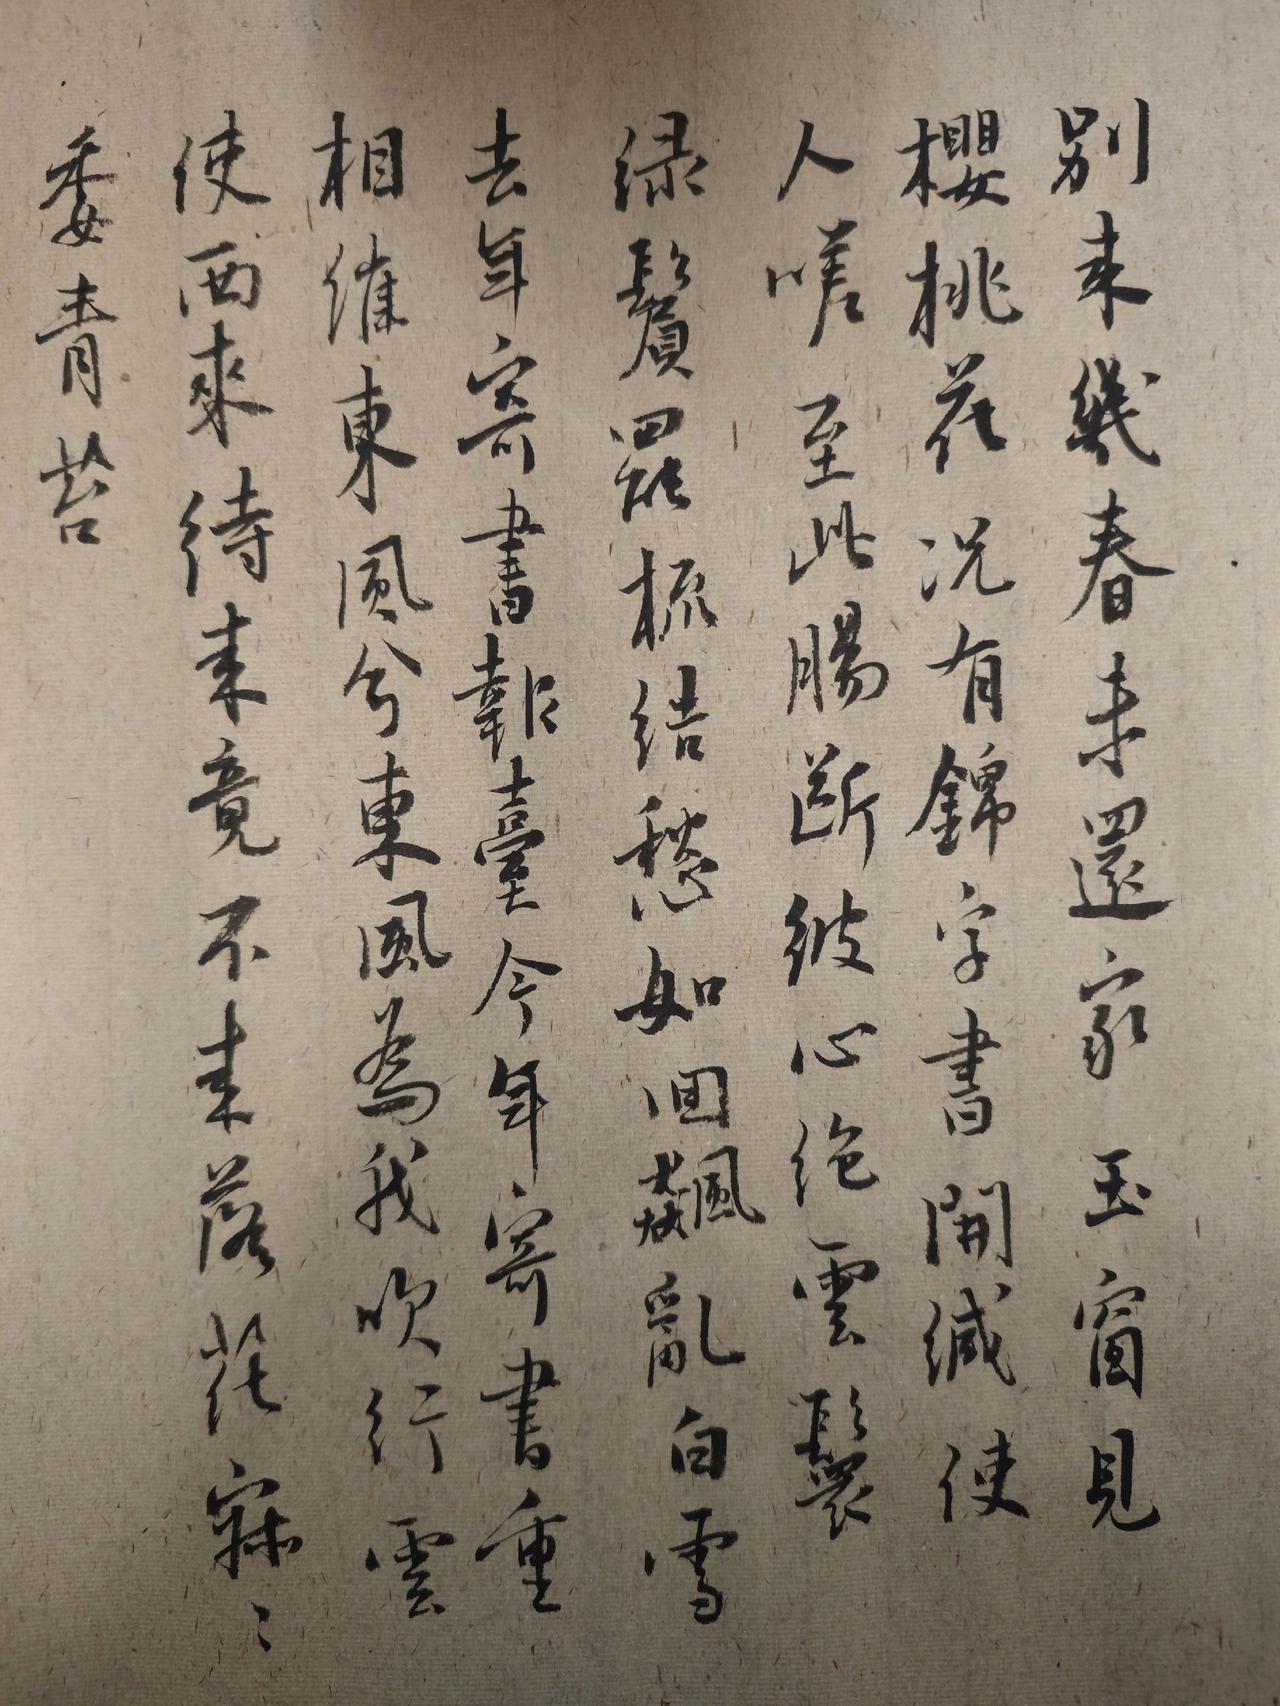 別来幾春未還家玉窗見
櫻桃花況有錦字書開緘使
人嗟至此腸斷彼心絶雲鬟
緑鬢罷梳結愁如回飆亂白雪
去年寄書報臺今年寄書重
相催東風兮東風為我吹行雲
使西來待来竟不来落花寂々
委青苔